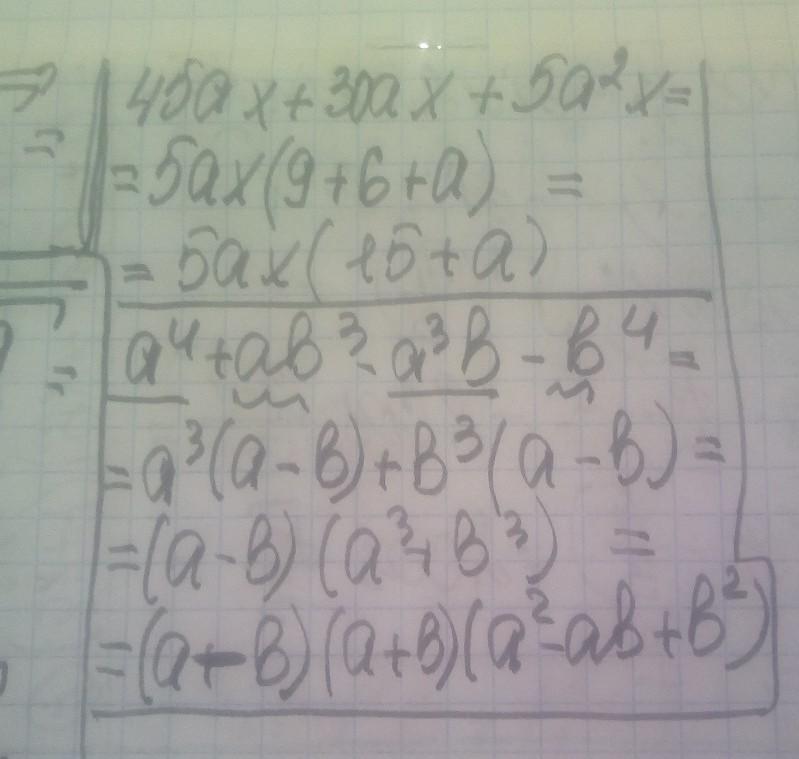 45ax+30ax+5a²x=
=5ax(9+6+a) =
=5ax(15+a)
a⁴+ab³-a³b-b⁴=
=a³(a-b)+b³(a-b)=
=(a-b)(a³+b³) =
=(a-b)(a+b)(a²-ab+b²)